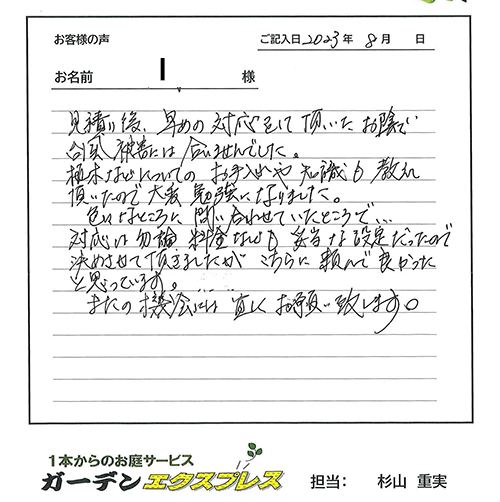 お客様の声 ご記入日 2023年 8月 日
お名前 様
見積り後、早めの対応をして頂いたお陰で
台風被害には合いませんでした。
植木などについてのお手入れや知識も教え
頂いたので大変勉強になりました。
色々なところに問い合わせていたところで…
対応は勿論 料金なども妥当な設定だったので
決めさせて頂きましたが こちらに頼んで良かった
と思っています。
またの機会には宜しくお願い致します。
1本からのお庭サービス
ガーデンエクスプレス 担当： 杉山 重実